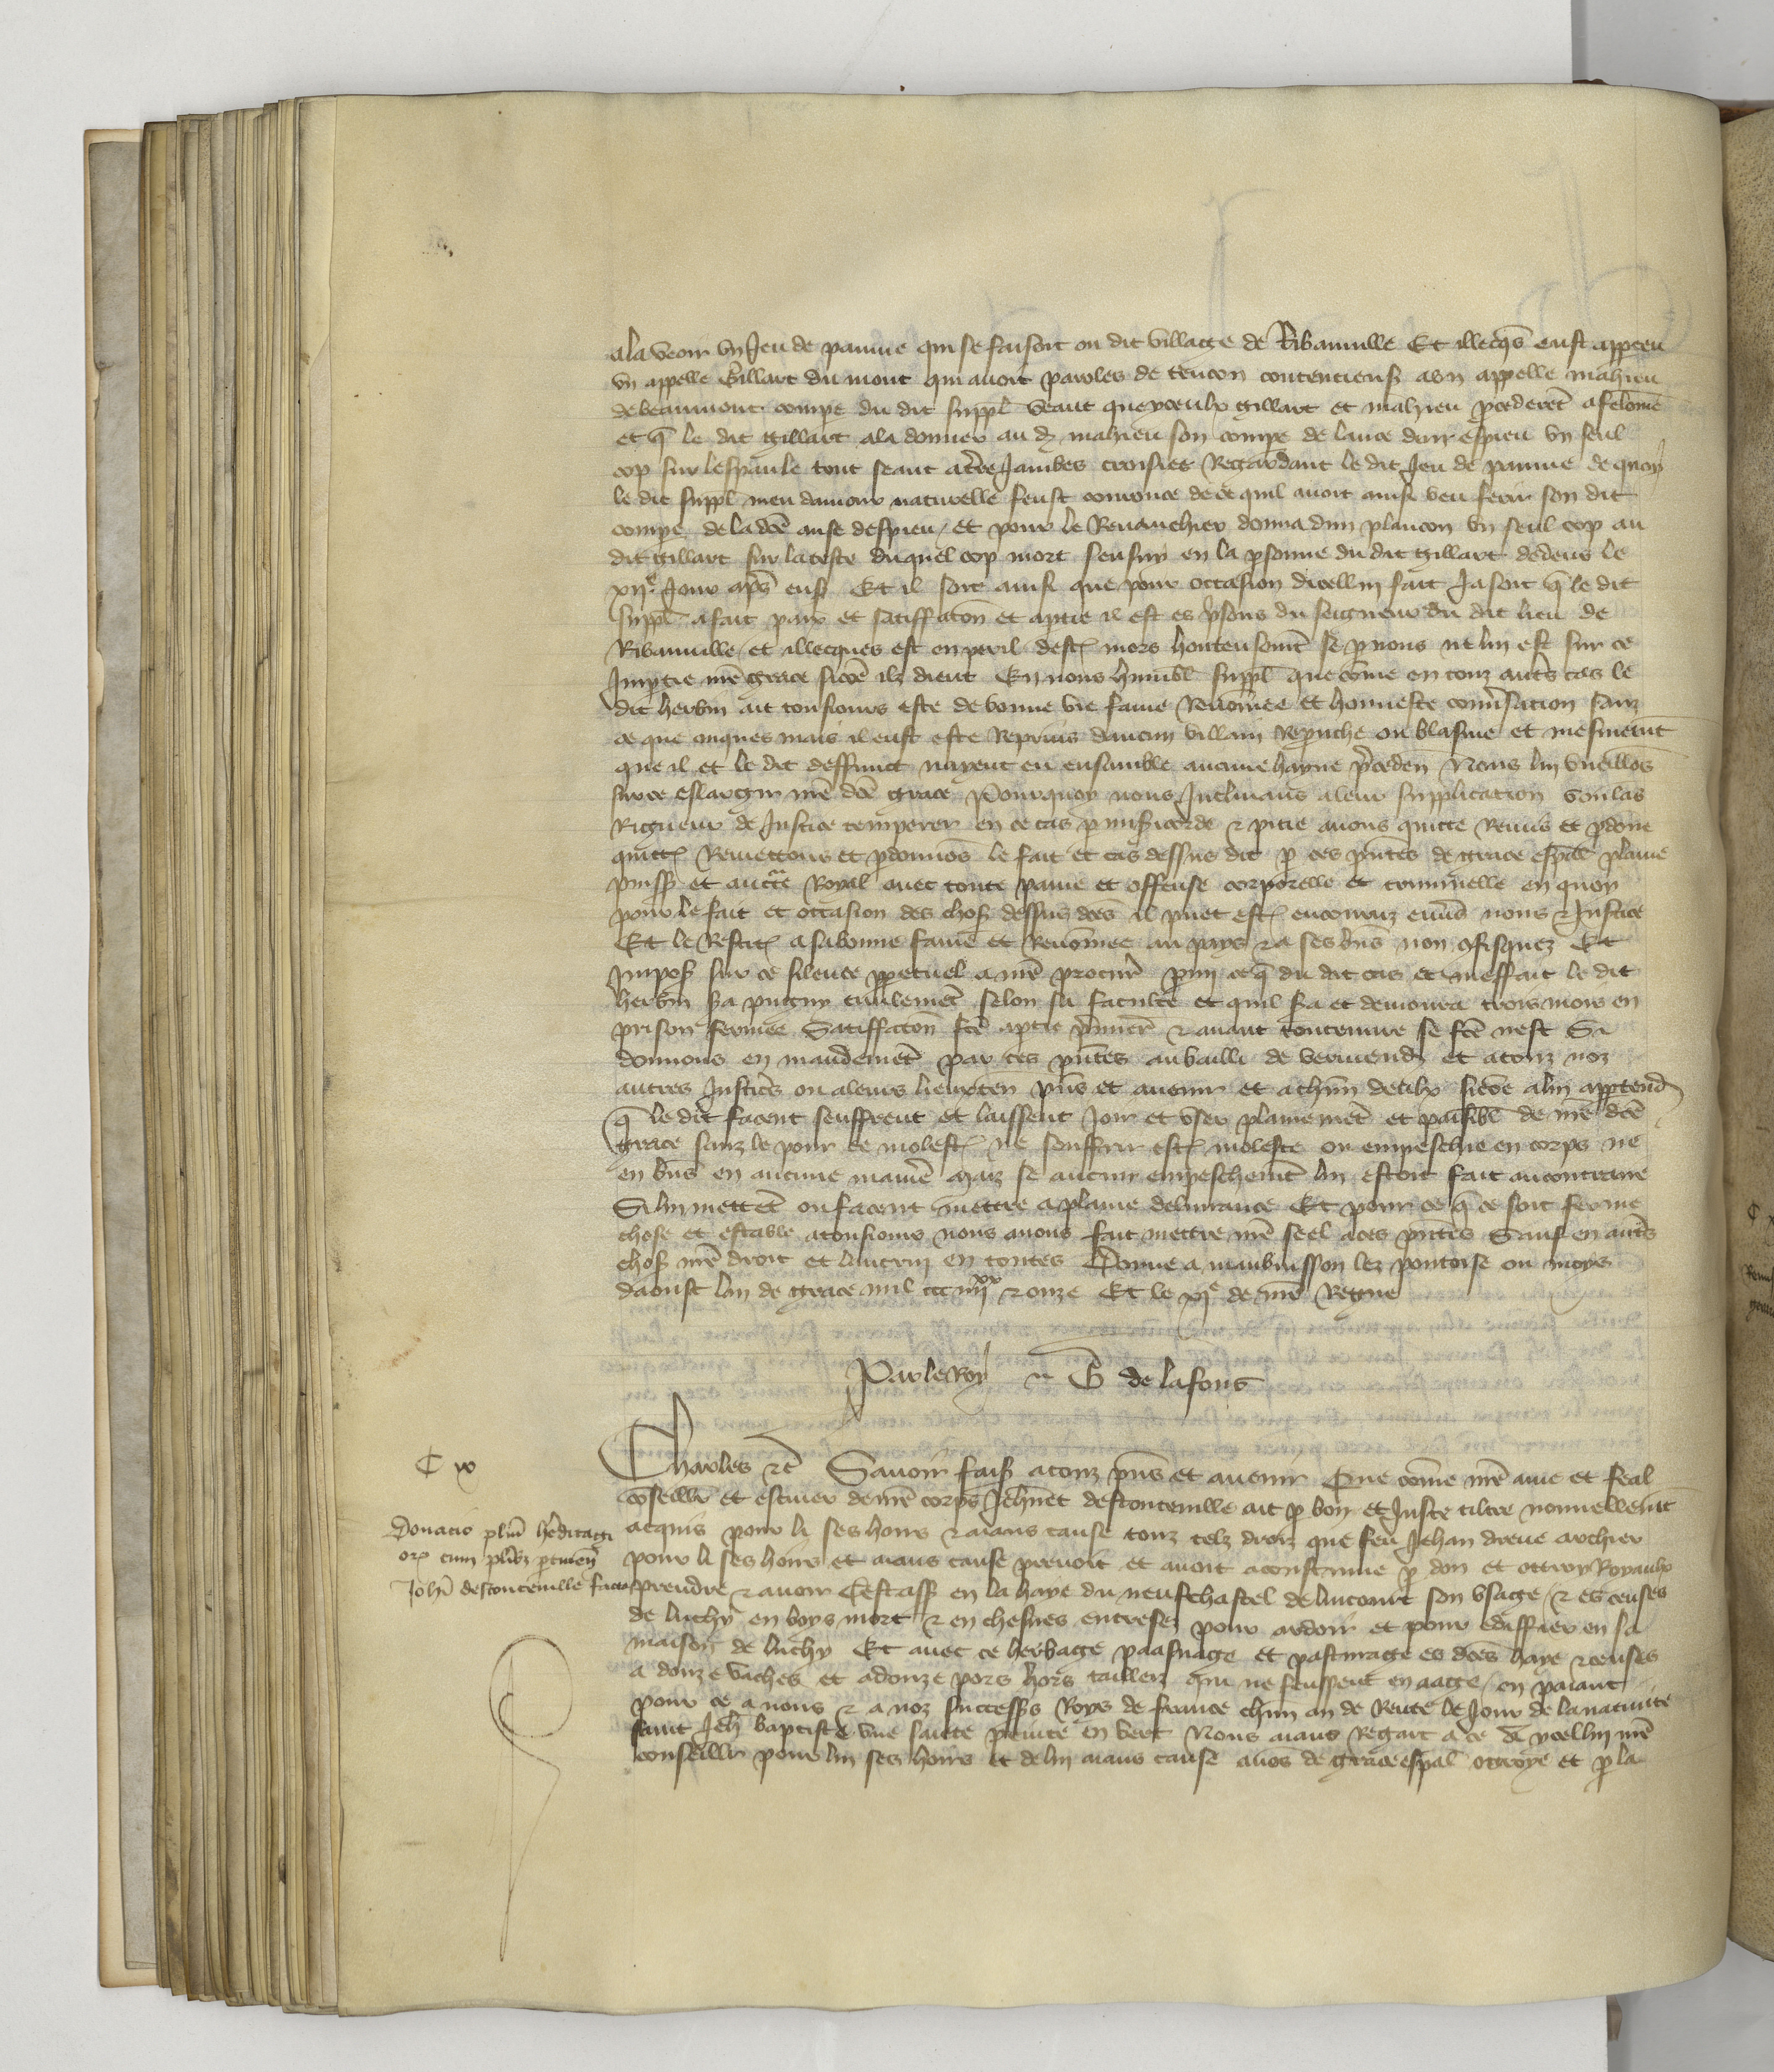 ala veoir vn Jeu de paume qui se faisoit ou dit village de Ribauuille Et illecqs eust apperceu
vn appelle Gillart du mont qui auoit paroles de tencon contencieuses a vn appelle mahieu
de beaumont compe du dit suppl veant que yceulx Gillart et mahieu procederet a felonie
et q le dit Gillart ala donner au d mahieu son compe de lance dun espieu vn seul
cop sur lespaule tout seant a terre Jambes croisies Regardant le dit Jeu de paume de quoy
le dit suppl meu damour naturelle feust couroucie de ce quil auoit ainsi veu ferir son dit
compe de la dce anse despieu et pour le Reuanchier donna dun plancon vn seul cop au
dit Gillart sur la teste duquel cop mort sensuy en la psonne du dit Gillart dedens le
xije Jour aps ens Et il soit ainsi que pour occasion dicellui fait Ja soit q le dit
suppl a fait paix et satiffacon et aptie il est es psons du seigneur du dit lieu de
Ribauuille et illecques est en peril dest mors honteusemt se p nous ne lui est sur ce
Impartie nre grace sicoe ilz dient En nous humbl suppl que come en touz auts cas le
dit herbin ait tousiours este de bonne vie fame Renommee et honneste conusacion sanz
ce que onques mais il eust este Reprins daucun villain Reprouche ou blasme et mesmemt
que il et le dit deffunct nayent eu ensamble aucune hayne preceden Nous lui vueillos
sur ce eslargir nre dce grace Pourquoy nous Inclinans a leur supplicacion voulans
Rigueur de Justice temperer en ce cas p misicorde & pitie auons quitte Remis et pdone
quitt Remettons et pdonnos le fait et cas dessus dit p ces pntes de grace espal plaine
puiss et aucte Royal auec toute paine et offense corporelle et criminelle en quoy
pour le fait et occasion des chos dessus dces il puet est encouruz enuers nous & Justice
Et le Restit a sa bonne fame et Renommee au pays & a ses bns non ofisquez Et
Impos sur ce silence ppetuel a nre procur pmi ce q du dit cas et meffait le dit
herbin sa pugny ciuilemet selon sa faculte et quil sa et demoura trois mois en
prison fermee Satiffacon fce aptie pmiere & auant toute euure se fce nest Si
donnons en mandemet par ces pntes au bailli de vermend et a touz noz
autres Justics ou a leurs lieuxten pns et auenir et a chun deulx sicoe a lui appartend
q le dit facent seuffrent et laissent Joir et vser plainemet et paisibl de nre dce
grace sanz le pour ce molest ne souffrir est moleste ou empeschie en corps ne
en bns en aucune maniere Maiz se aucun empeschemt lui estoit fait au contraire
Si lui mettet ou facent mettre a plaine deliurance Et pour ce q ce soit ferme
chose et estable a tousiours nous auons fait mettre nre seel a ces pntes Sauf en auts
chos nre droit et lautruy en toutes Donne a maubuisson lez pontoise ou moys
daoust lan de grace mil ccc iiijxx & onze Et le xje de nre Regne
Par le Roy G de la fons
C x
Charles &c Sauoir fais a touz pns et auenir Que come nre ame et feal
coseillr et escuier de nre corps Jehnet destouteuille ait p bon et Juste tiltre nouuellemt
acquis pour li ses hoirs & aians cause touz telz droiz que feu Jehan dreue archier
pour li ses hoirs et aians cause prenoit et auoit acoustume p don et ottroy Royaulx
prendre & auoir Cestass en la haye du neufchastel de lincourt son vsage & es ceuses
de luchy en boys mort & en chesnes entresez pour ardoir et pour ediffier en sa
maison de luchy Et auec ce herbage paasnage et pasturage es dces haye & ceuses
a donze vaches et a donze pors hors tailleiz qui ne feuspent en aage en paiant
pour ce a nous & a noz successs Roys de france chun an de Rente le Jour de la natiuite
saint Jeh baptiste vne saicte peinte en vert Nous aians Regart a ce a ycellui nre
conseillr pour lui ses hoirs et de lui aians cause auos de grace espal ottroye et p la
Donacio plim hereditagi
or cum plibz ptinen
Johi destouteuille facta